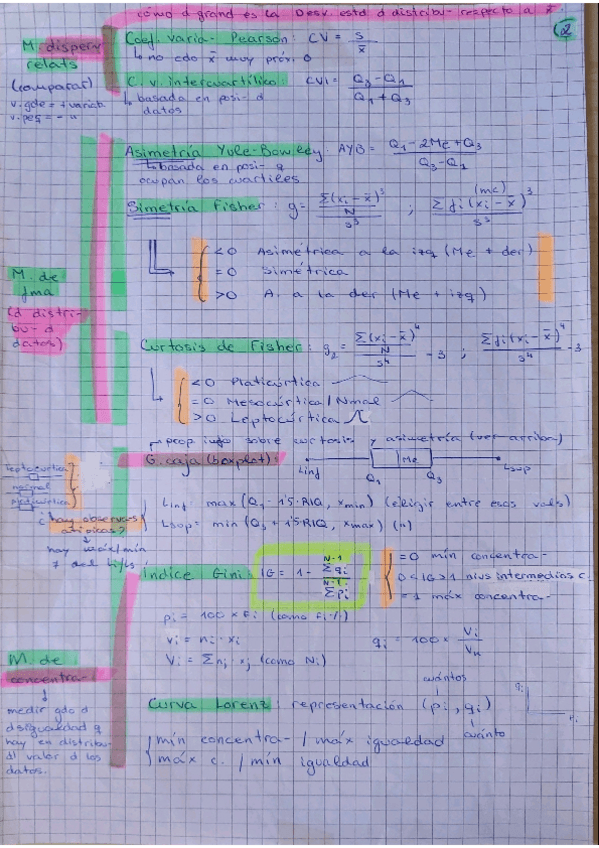 cómo d grand es la Desv. estd d distribu- respecto a x̄.
(2
M. dispers
relats
(comparar)
v. gde = + variab.
v. peq = - "
Coef. varia- Pearson: CV = s / x̄
↳ no cdo x̄ muy próxi 0
C. v. intercuartílico: CVI = Q3 - Q1 / Q1 + Q3
↳ basada en posi- d
datos
Asimetría Yule-Bowley: AYB = Q1 - 2Me + Q3 / Q3 - Q1
↳ basada en posi- q
ocupan los cuartiles
Simetría Fisher: g = Σ(xi - x̄)³ / N / s³ ; (mc) Σ fi (xi - x̄)³ / s³
< 0 Asimétrica a la izq (Me + der)
= 0 Simétrica
> 0 A. a la der (Me + izq)
M. de
fma
(d distri-
bu- d
datos)
Curtosis de Fisher: g2 = Σ(xi - x̄)⁴ / N / s⁴ - 3 ; Σ fi (xi - x̄)⁴ / s⁴ - 3
< 0 Platicúrtica
= 0 Mesocúrtica / Nmal
> 0 Leptocúrtica
prop info sobre curtosis y asimetría (ver arriba)
G. caja (boxplot):
Linf Q1 Me Q3 Lsop
leptocúrtica
normal
platicúrtica
¿hay observacs
atípicas?
hay máx/mín
Linf = max (Q1 - 1'5·RIQ, xmin) (elegir entre esos vals)
Lsop = min (Q3 + 1'5·RIQ, xmax) (")
Índice Gini: IG = 1 - N-1 Σ qi / N-1 Σ pi
= 0 mín concentra-
0 < IG > 1 nivs intermedios c.
= 1 máx concentra-
pi = 100 × Fi (como Fi%)
vi = ni · xi
qi = 100 × Vi / Vn
Vi = Σ ni · xj (como Ni)
M. de
concentra-
medir gdo d
dsigualdad q
hay en distribu-
dl valor d los
datos.
cuántos
Curva Lorenz: representación (pi, qi)
cuánto
qi
pi
mín concentra- / máx igualdad
máx c. / mín igualdad